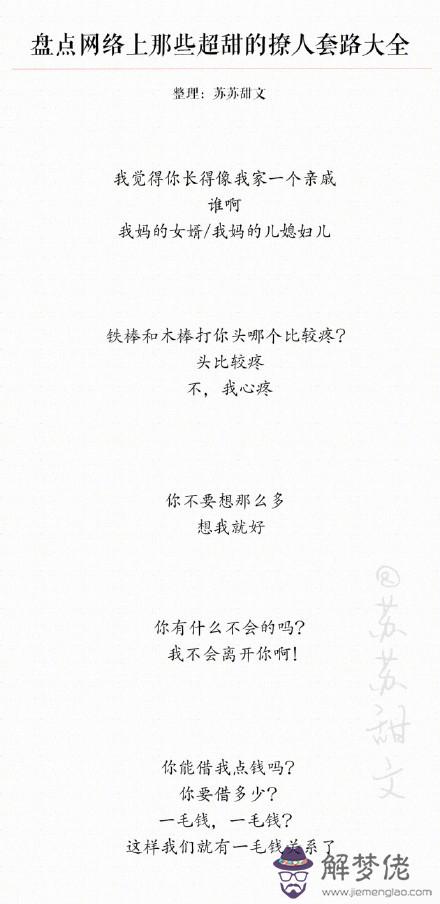 盘点网络上那些超甜的撩人套路大全
整理：苏苏甜文
我觉得你长得像我家一个亲戚
谁啊
我妈的女婿/我妈的儿媳妇儿
铁棒和木棒打你头哪个比较疼？
头比较疼
不，我心疼
你不要想那么多
想我就好
你有什么不会的吗？
我不会离开你啊！
@苏苏甜文
你能借我点钱吗？
你要借多少？
一毛钱，一毛钱？
这样我们就有一毛钱关系了
解梦佬
www.jiemenglao.com